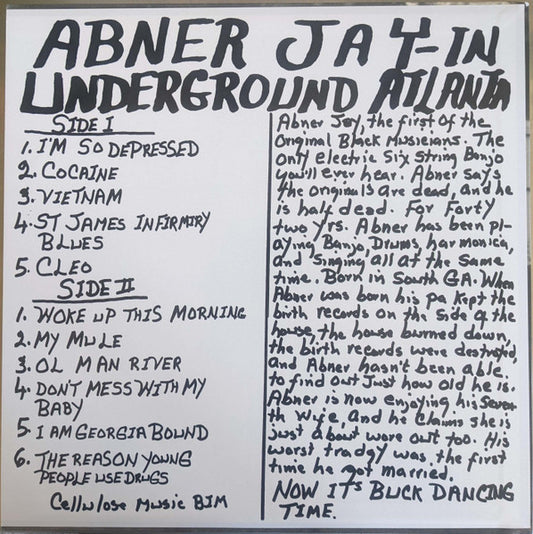 ABNER JAY-IN
UNDERGROUND ATLANTA
SIDE I
1. I'M SO DEPRESSED
2. COCAINE
3. VIETNAM
4. ST JAMES INFIRMIRY
BLUES
5. CLEO
SIDE II
1. WOKE UP THIS MORNING
2. MY MULE
3. OL MAN RIVER
4. DON'T MESS WITH MY
BABY
5. I AM GEORGIA BOUND
6. THE REASON YOUNG
PEOPLE USE DRUGS
Cellulose Music BIM
Abner Jay, the first of the
Original Black Musicians. The
only electric Six String Banjo
you'll ever hear. Abner says
the originals are dead, and he
is half dead. For Forty
two yrs. Abner has been pl-
aying Banjo, Drums, harmonica,
and singing all at the same
time. Born in South GA. When
Abner was born his pa kept the
birth records on the side of the
house, the house burned down,
the birth records were destroyed,
and Abner hasn't been able
to find out Just how old he is.
Abner is now enjoying his Seven
th Wife, and he claims she is
just about wore out too. His
worst tradgy was the first
time he got married.
NOW IT'S BUCK DANCING
TIME.